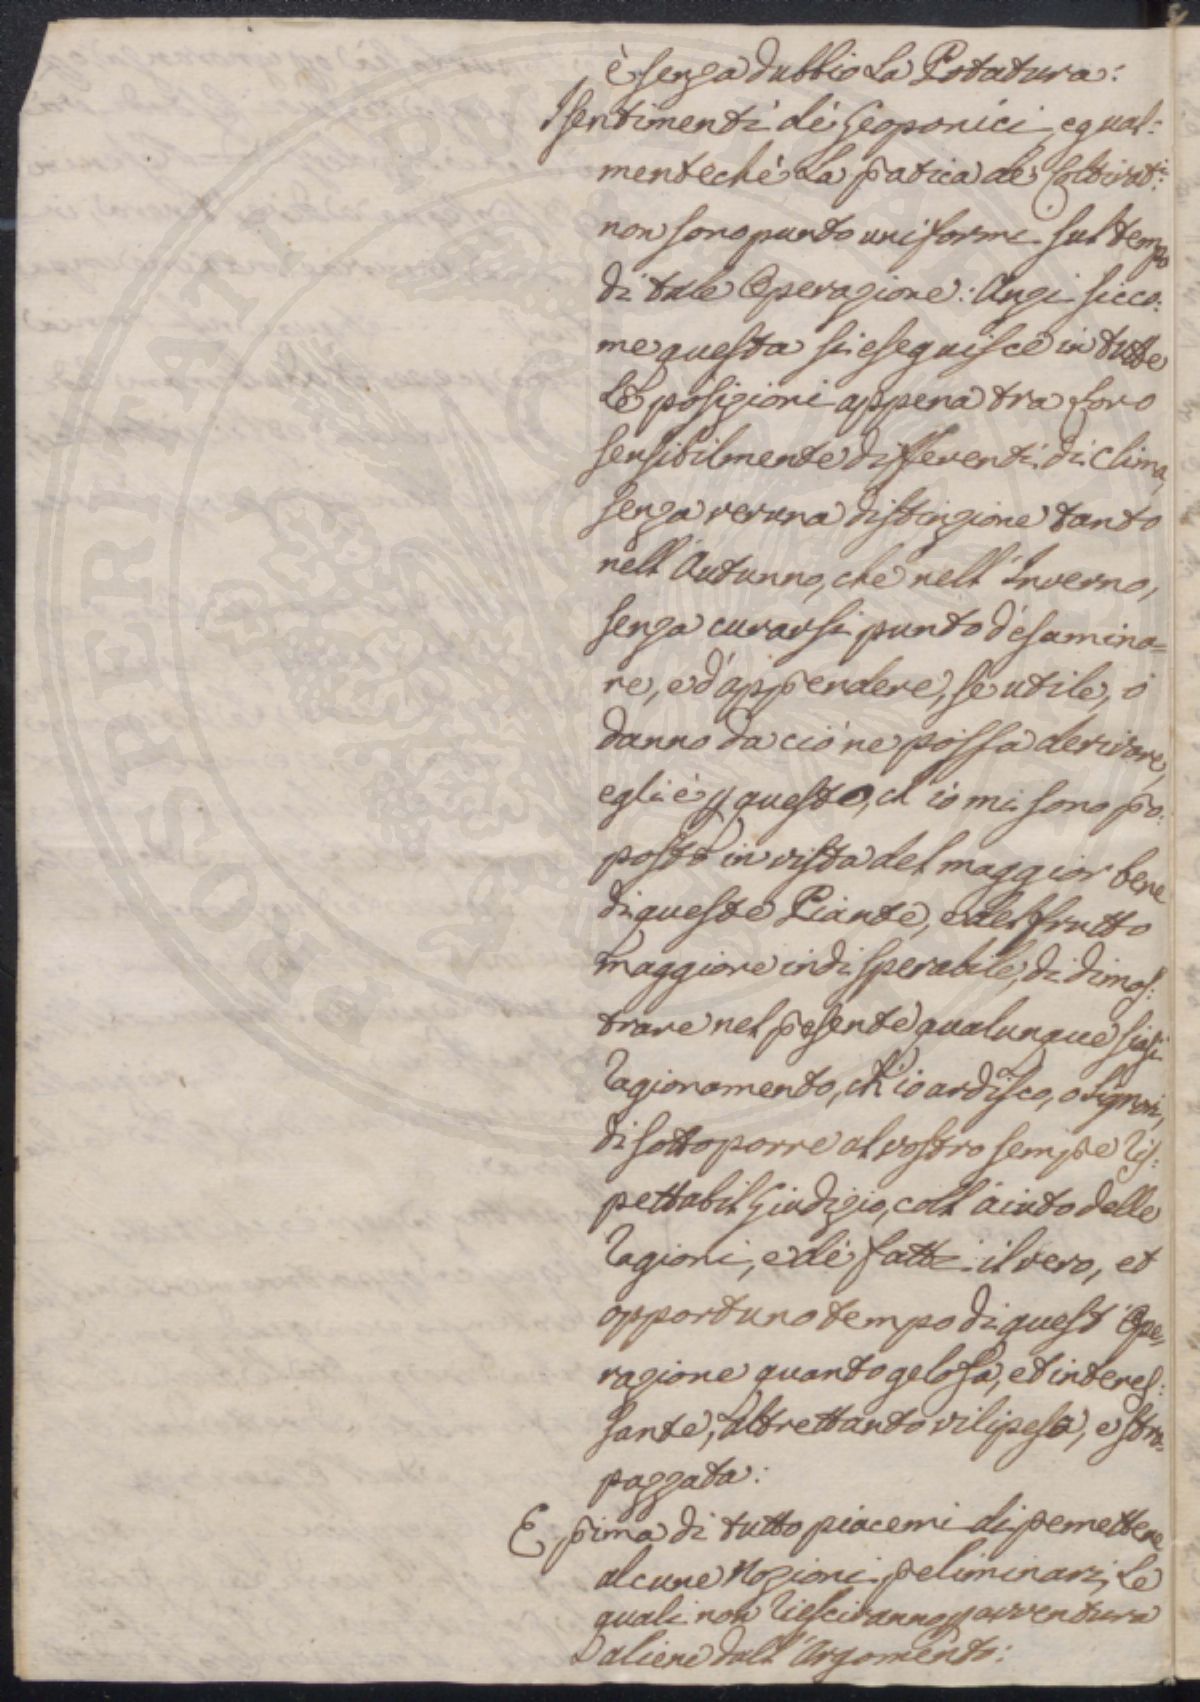 è senza dubbio La Potatura:
I sentimenti de' Geoponici egual:
mente ché La pratica de' Coltivat:i
non sono punto uniformi sul tempo
di tale Operazione: Anzi sicco:
me questa si eseguisce in tutte
Le posizioni appena tra Loro
sensibilmente differenti di Clima,
senza veruna distinzione tanto
nell'Autunno, che nell'Inverno,
senza curarsi punto d'esamina=
re, e d'apprendere, se utile, ò
danno da ciò ne possa derivare,
egli è p questo, ch'io mi sono pro:
posto in vista del maggior bene
di queste Piante, e del frutto
maggiore indisperabile, di dimos:
trare nel presente qualunque siasi
Ragionamento, ch'io ardisco, o Signori,
di sottoporre al vostro sempre Ris:
pettabil Giudizio, coll'aiuto delle
Ragioni, e de' fatti il vero, et
opportuno tempo di quest'Ope,
razione quanto gelosa, et interes:
sante, altrettanto vilipesa, e stra:
pazzata:
E prima di tutto piacemi di premettere
alcune Nozioni preliminari, Le
quali non Riesciranno p avventura
aliene dall'Argomento:
PROSPERITATI PUBLICAE